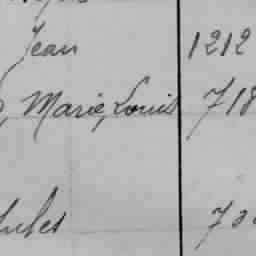 Jean 1212
, Marie, Louis 718
Jules 70